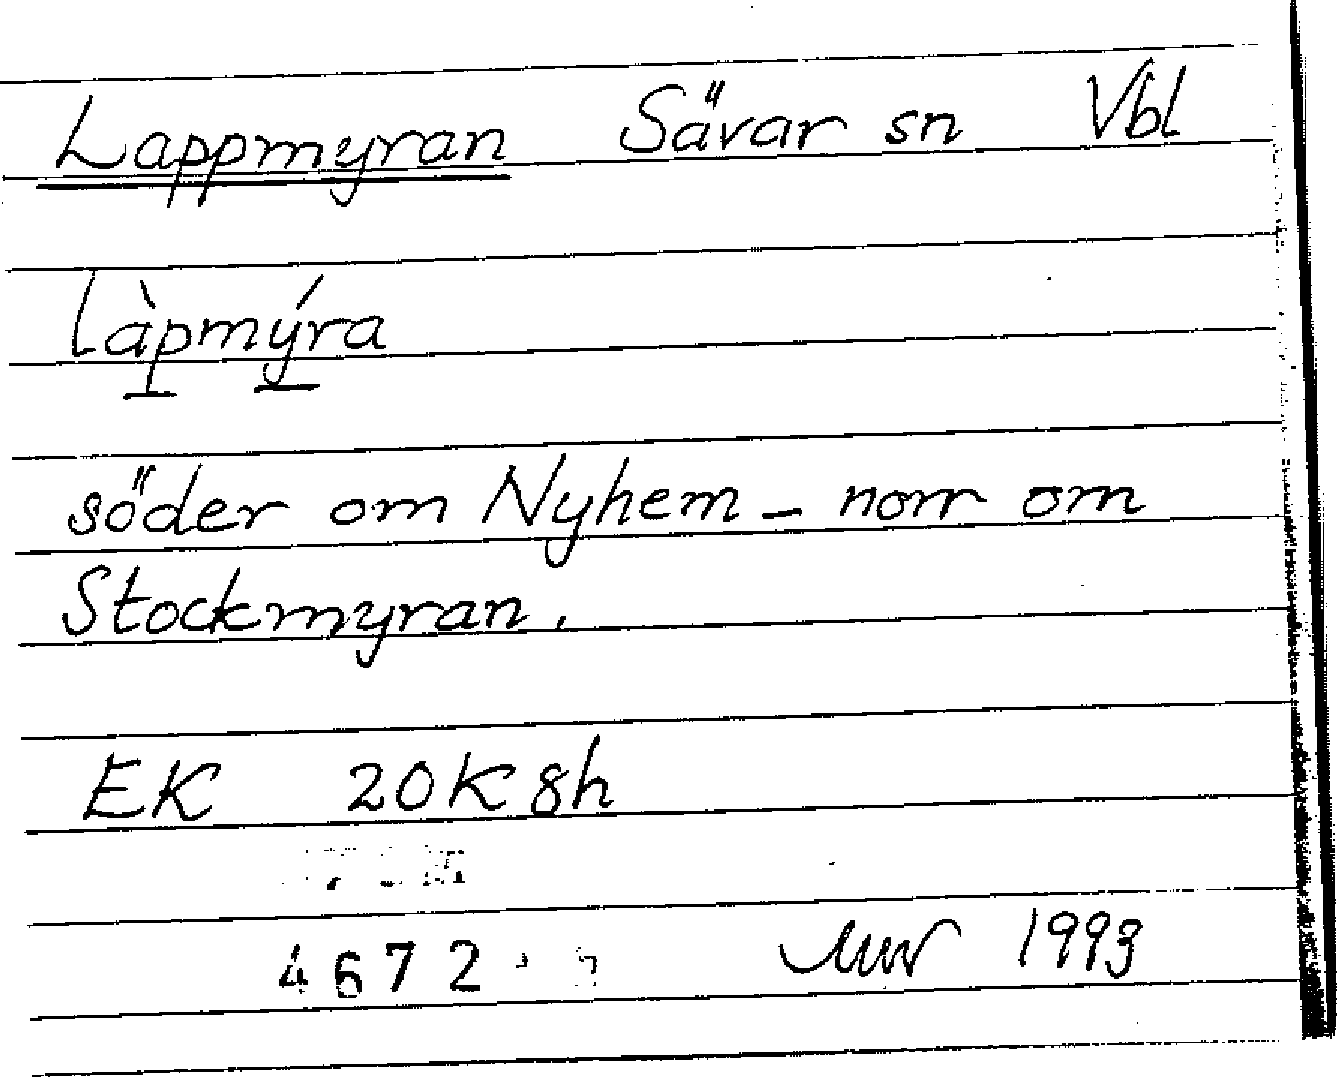 Lappmyran Sävar sn Vbl
làpmýra
söder om Nyhem - norr om
Stockmyran.
EK 20K8h
4672
1993